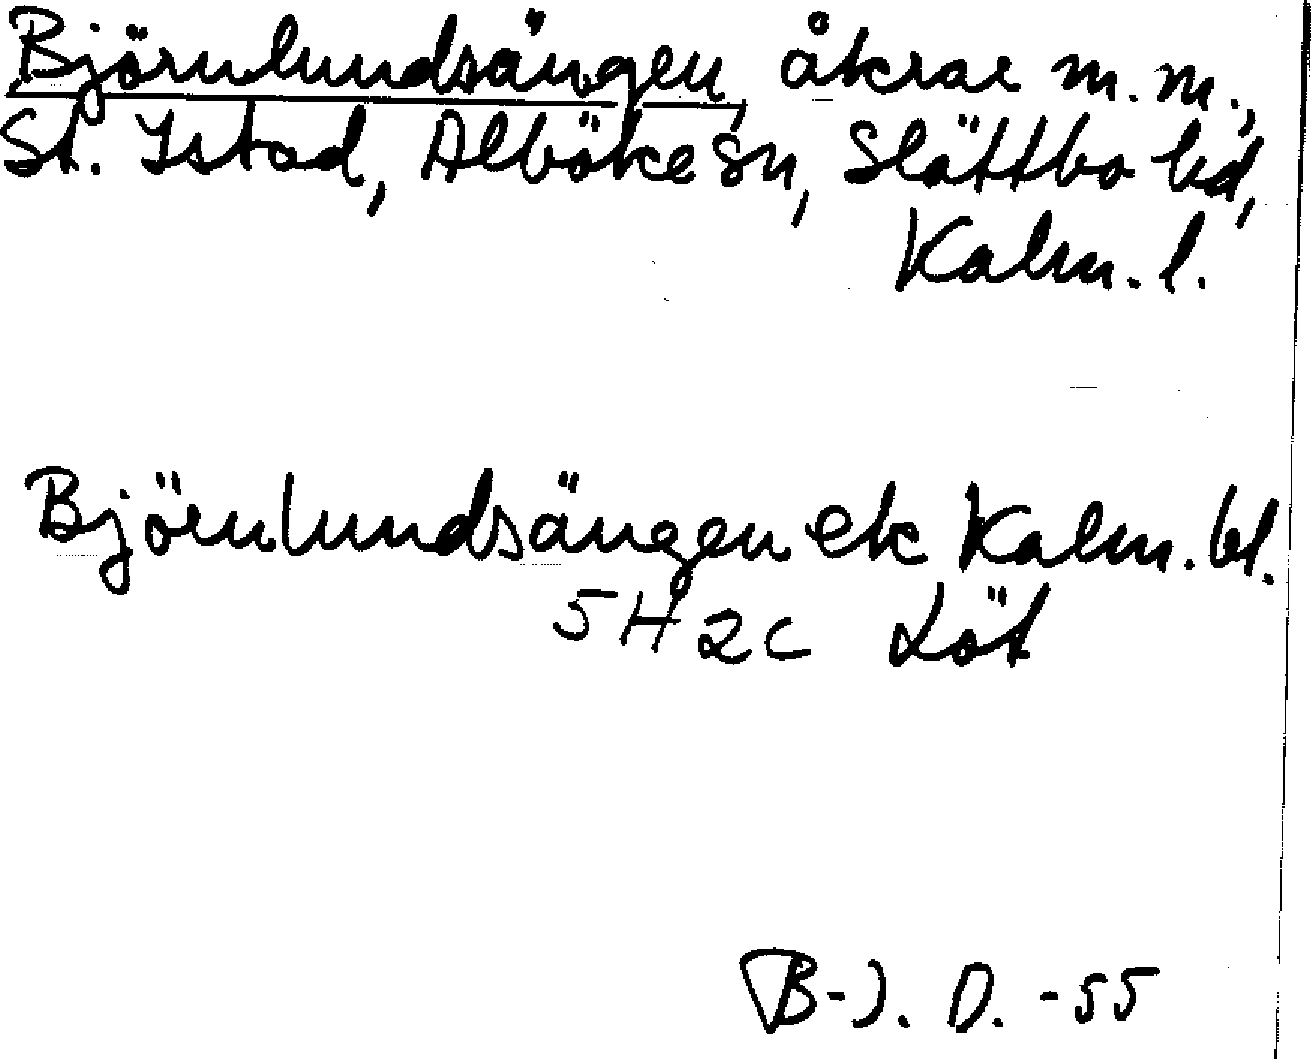 Björnlundsängen, åkrar m. m.,
St. Istad, Alböke sn, Slättbo hd,
Kalm. l.
Björnlundsängen ek Kalm. bl.
5H2c Löt
B-J. D. -55